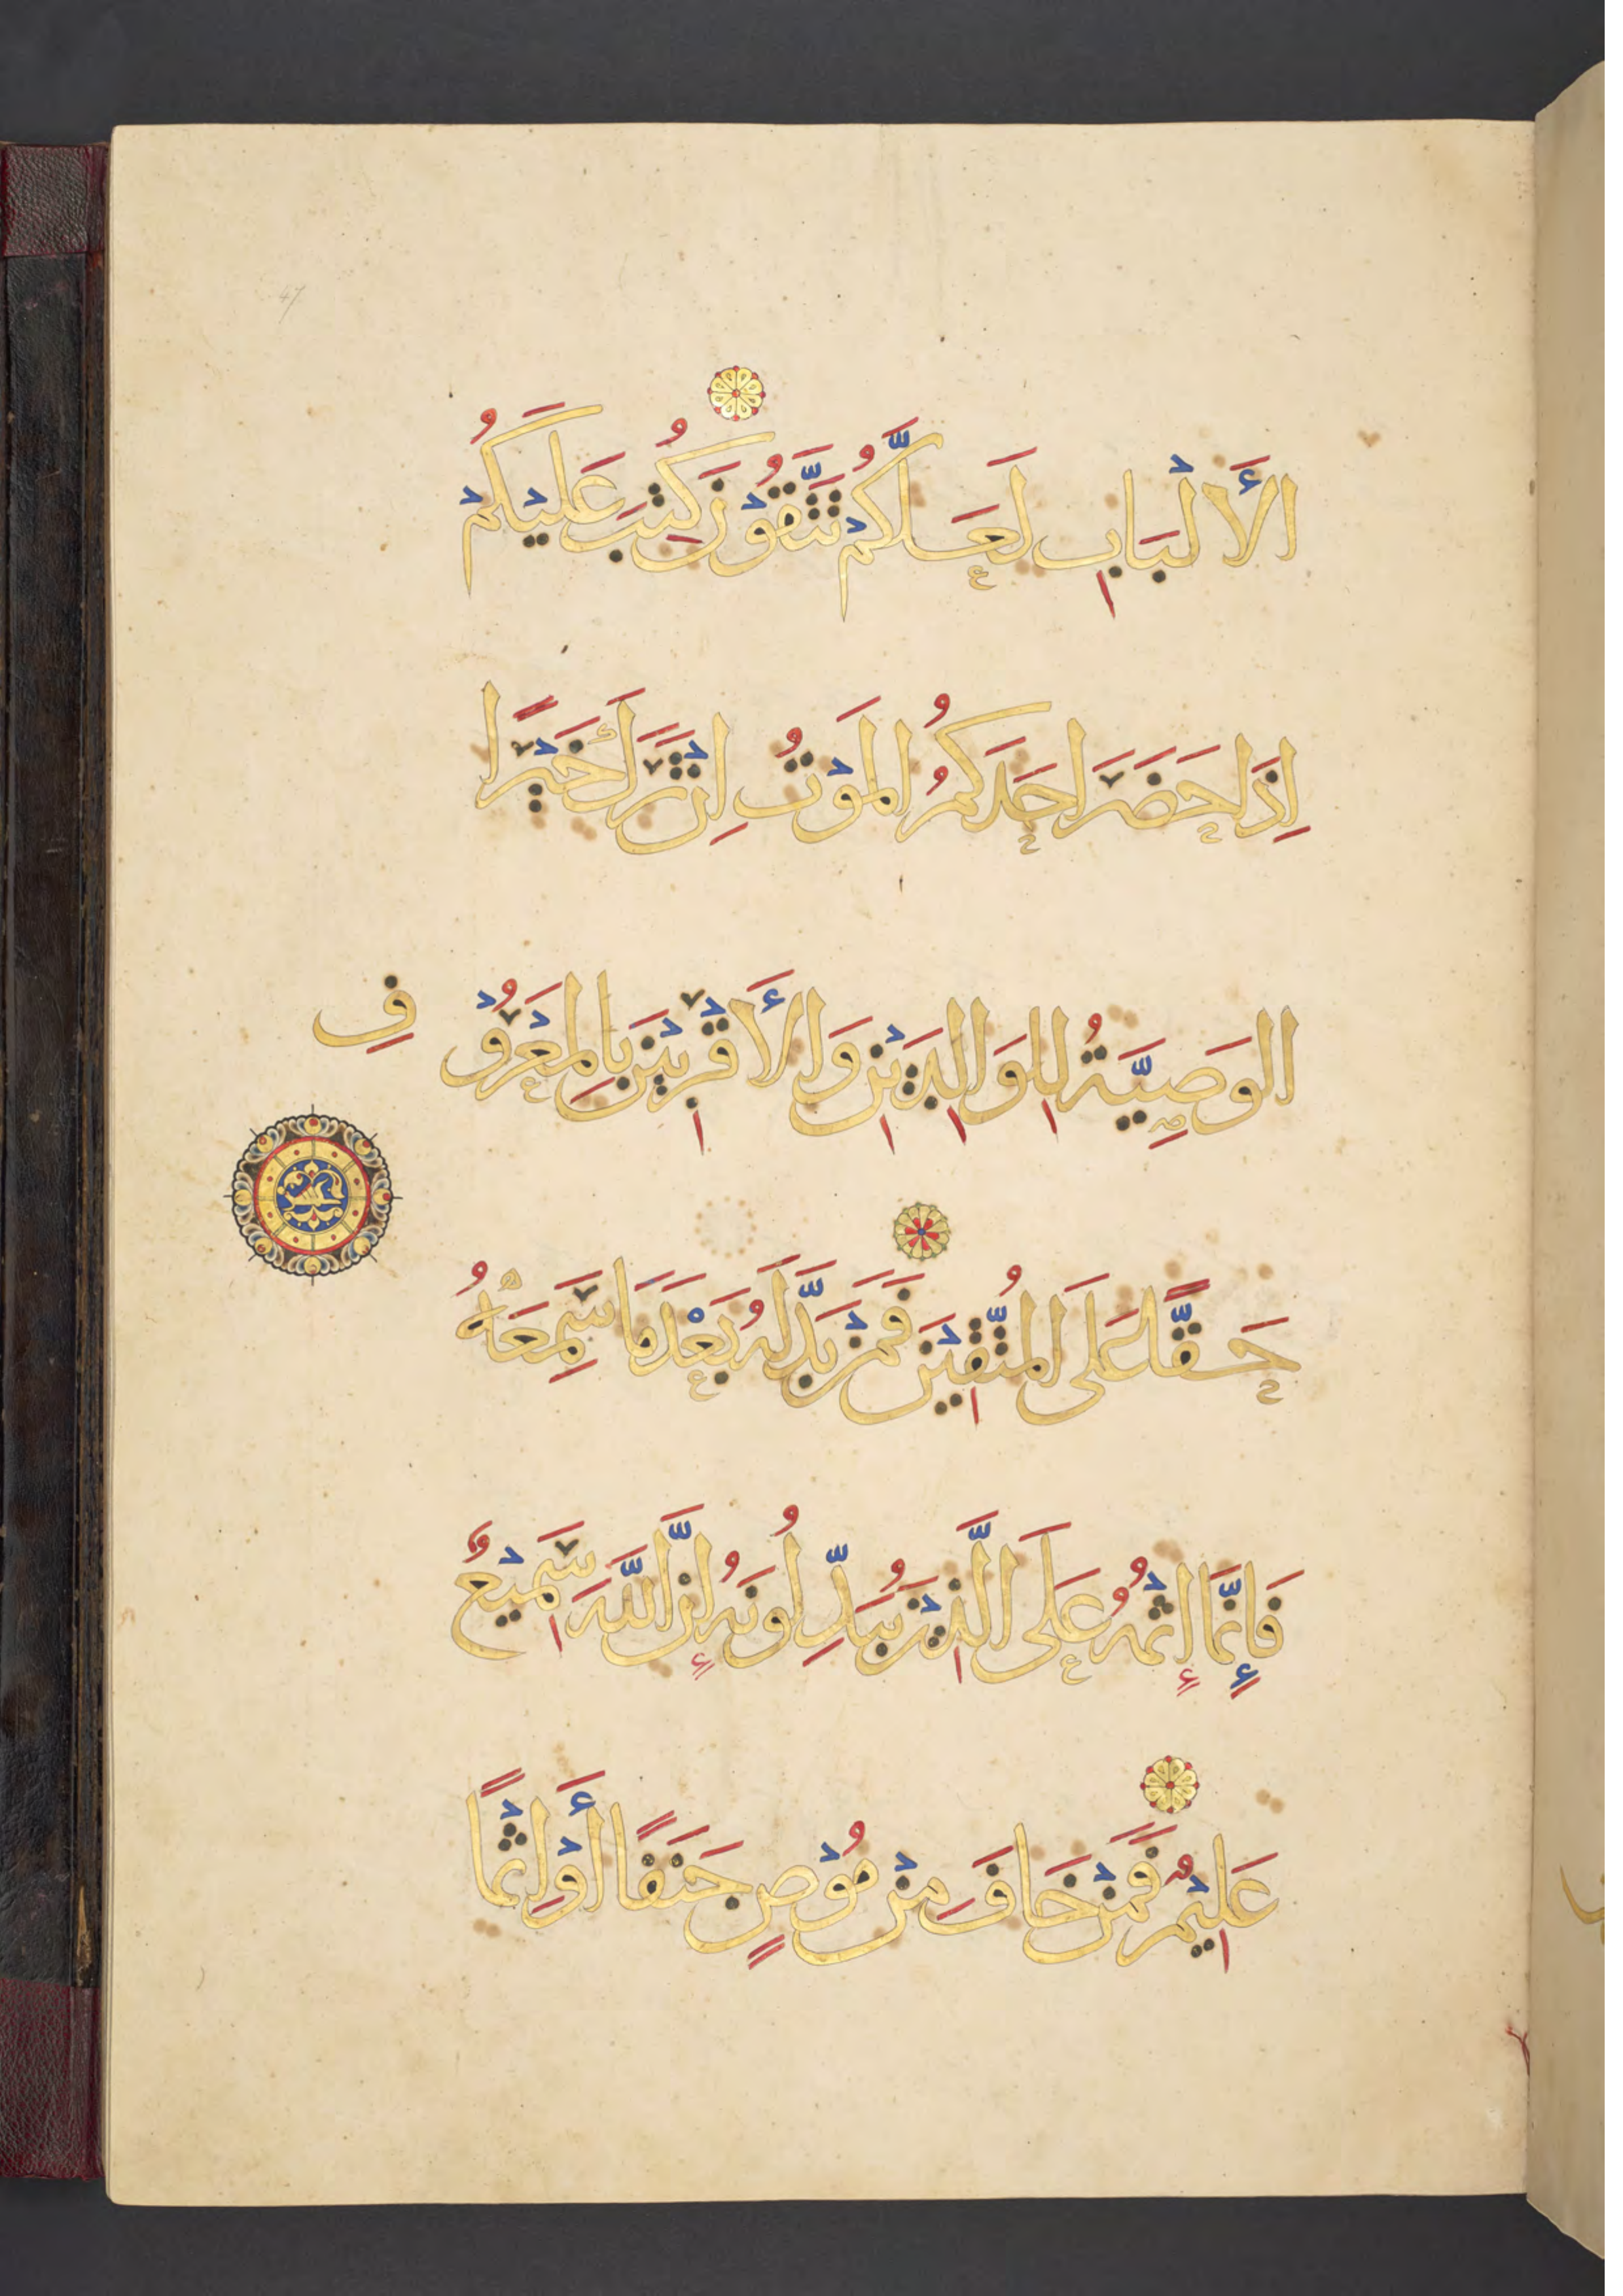 الأَلْبَابِ لَعَلَّكُمْ تَتَّقُوْنَ كُتِبَ عَلَيْكُمْ
اِذَا حَضَرَ اَحَدَكُمُ الْمَوْتُ اِنْ تَرَكَ خَيْرًا
الوَصِيَّةُ لِلْوَالِدَيْنِ وَالأَقْرَبِيْنَ بِالْمَعْرُوْفِ
حَقًّا عَلَى الْمُتَّقِيْنَ فَمَنْ بَدَّلَهُ بَعْدَ مَا سَمِعَهُ
فَإِنَّمَا إِثْمُهُ عَلَى الَّذِيْنَ يُبَدِّلُونَهُ إِنَّ اللَّهَ سَمِيْعٌ
عَلِيْمٌ فَمَنْ خَافَ مِنْ مُوْصٍ جَنَفًا أَوْ اِثْمًا
47